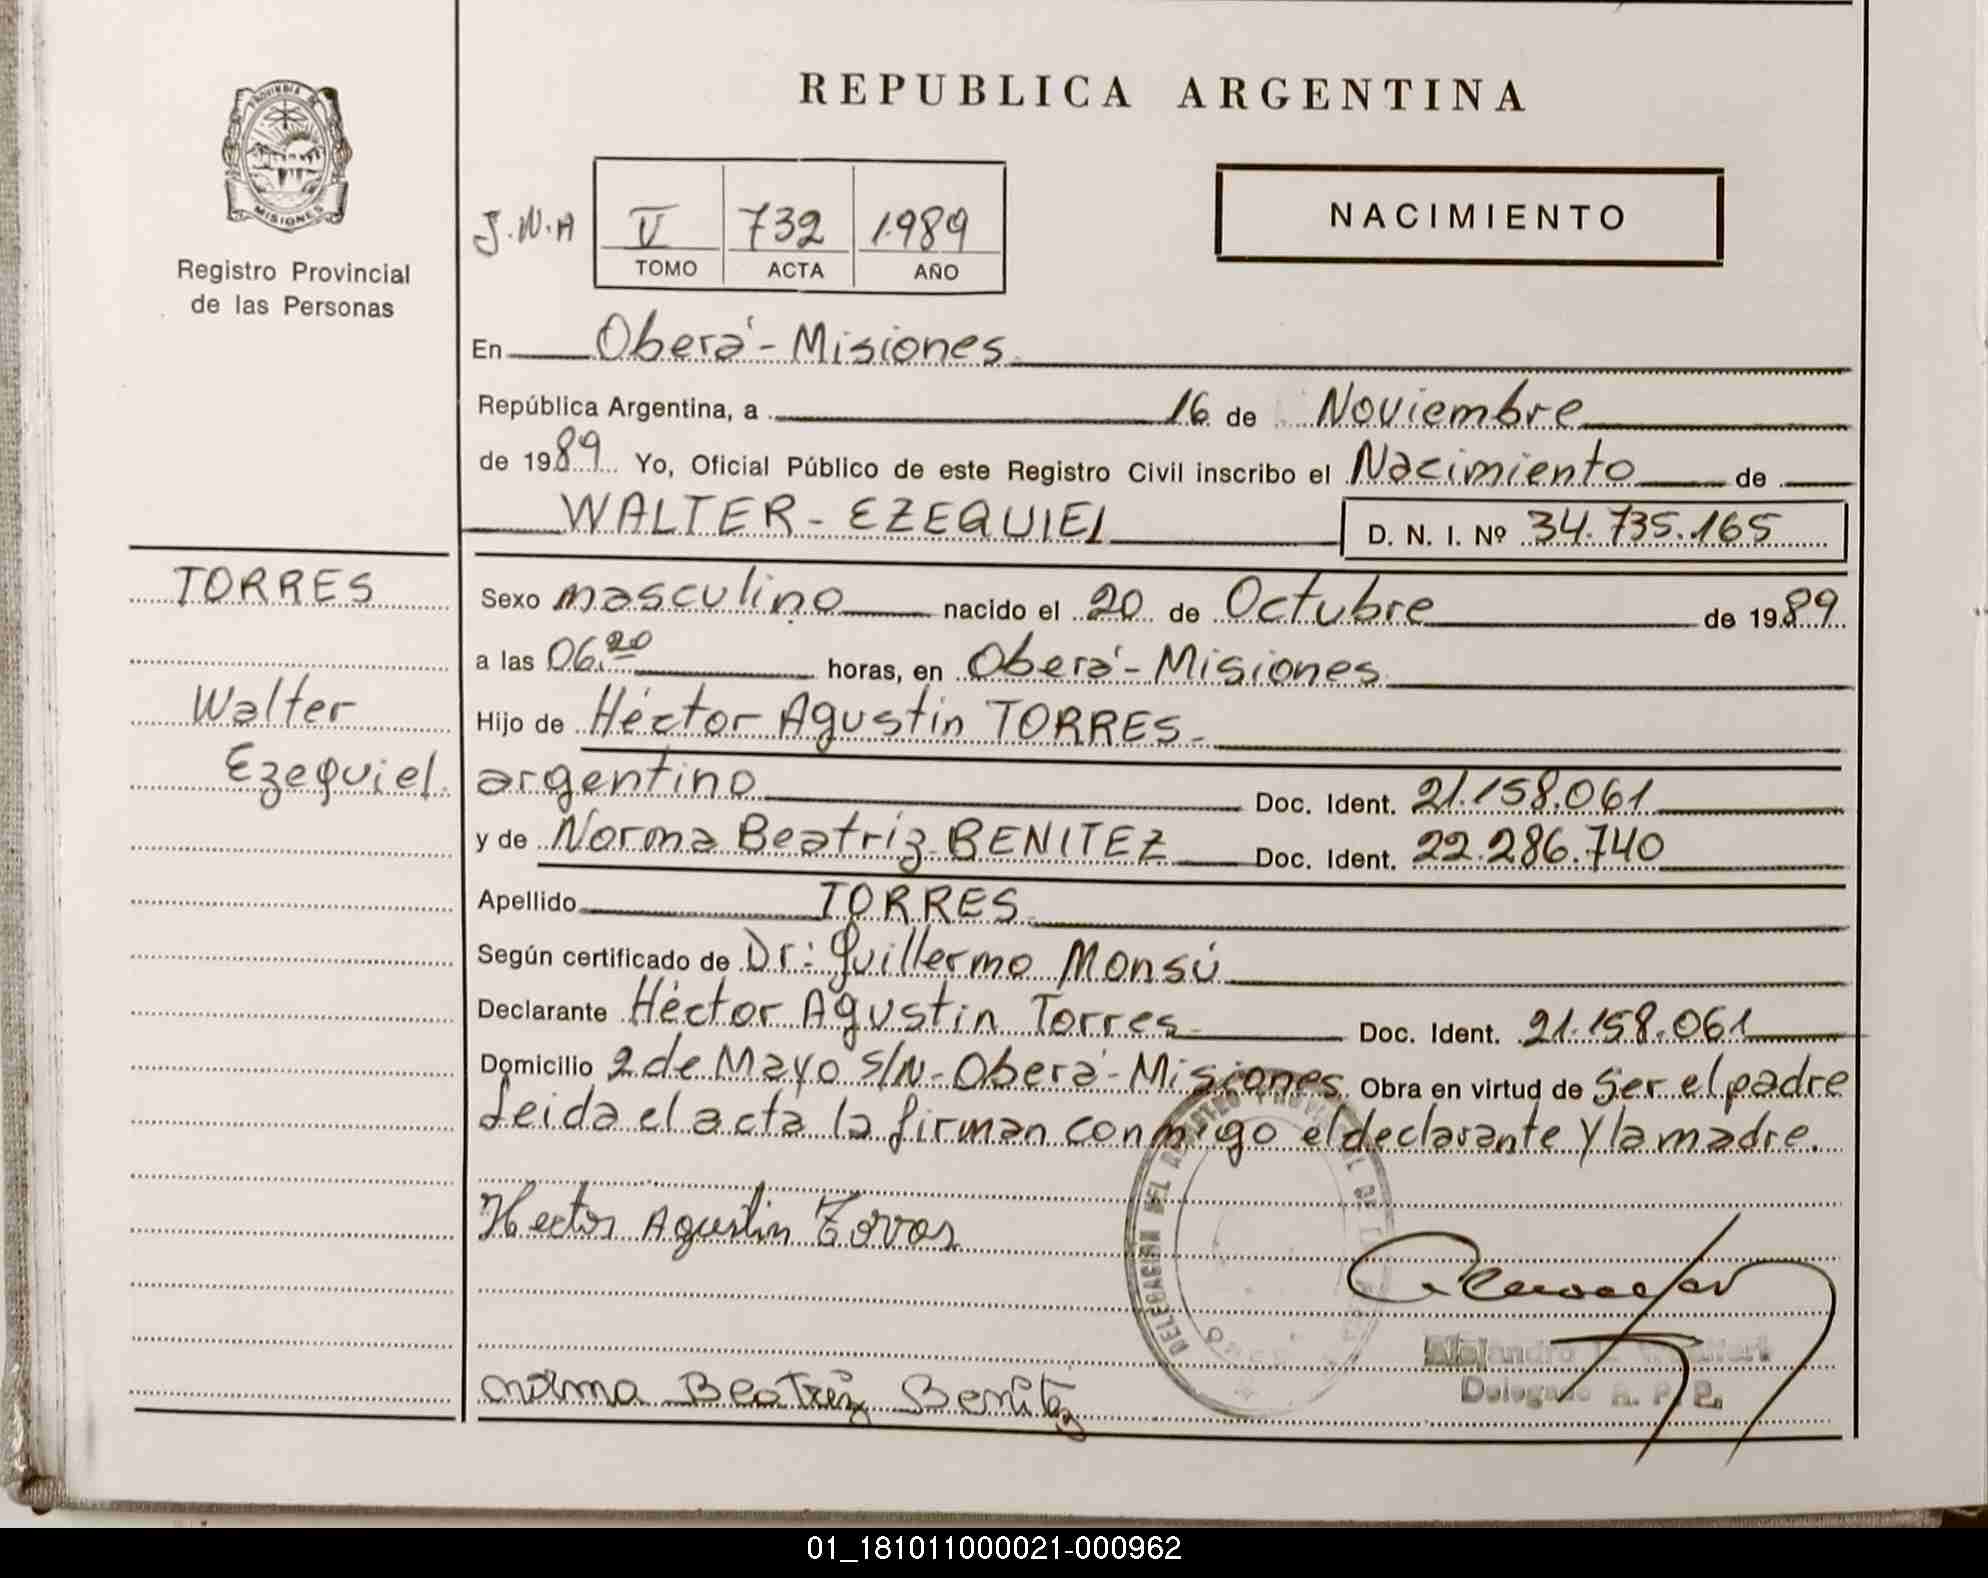 REPUBLICA ARGENTINA
PROVINCIA DE
MISIONES
Registro Provincial
de las Personas
J.N.A
V 732 1989
TOMO ACTA AÑO
NACIMIENTO
En Oberá - Misiones
República Argentina, a 16 de Noviembre
de 1989 Yo, Oficial Público de este Registro Civil inscribo el Nacimiento de
WALTER - EZEQUIEL D. N. I. Nº 34.735.165
TORRES
Walter
Ezequiel.
Sexo masculino nacido el 20 de Octubre de 1989
a las 06.20 horas, en Oberá - Misiones
Hijo de Héctor Agustín TORRES
argentino Doc. Ident. 21.158.061
y de Norma Beatriz BENITEZ Doc. Ident. 22.286.740
Apellido TORRES
Según certificado de Dr: Guillermo Monsú
Declarante Héctor Agustín Torres Doc. Ident. 21.158.061
Domicilio 2 de Mayo s/N - Oberá - Misiones Obra en virtud de Ser el padre
Leida el acta la firman conmigo el declarante y la madre.
Hector Agustin Torres
DELEGACION DEL REGISTRO PROVINCIAL DE
Alejandro
Delegado R. P. P.
Norma Beatriz Benitez
01_181011000021-000962